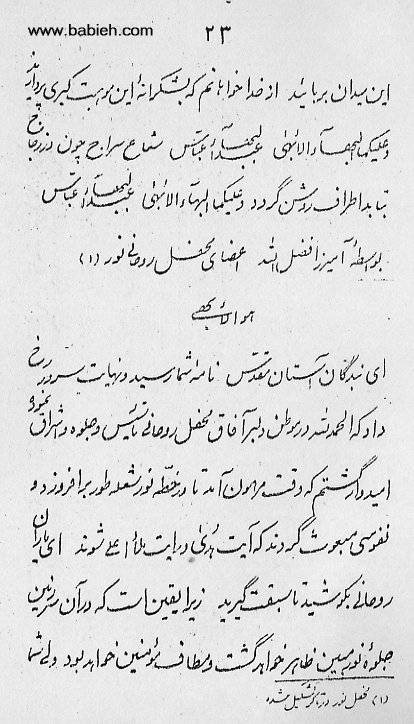 www.babieh.com
٢٣
این میدان بربائید از خدا خواهانم که بشکرانهٔ این موهبت کبری پردازید
و علیکما البهآء الأبهی عبدالبهآء عبّاس شعاع سراج چون در زجاج
بتابد اطراف روشن گردد و علیکما البهآء الابهی عبدالبهآء عبّاس
بواسطهٔ آمیرزا فضل الله اعضای محفل روحانی نور (۱)
هوالأبهی
ای بندگان آستان مقدّس نامهٔ شما رسید و نهایت سرور رخ
داد که الحمدلله در موطن دلبر آفاق محفل روحانی تأسیس و جلوه و اشراق نمود
امیدوار گشتم که وقت مرهون آمد تا در خطّهٔ نور شعلهٔ طور برافروزد و
نفوسی مبعوث گردند که آیت هدی و رایت ملأ اعلی شوند ای یاران
روحانی بکوشید تا سبقت گیرید زیرا یقین است که در آن سرزمین
جلوهٔ نور مبین ظاهر خواهد گشت و مطاف مؤمنین خواهد بود ولی شما
(۱) محفل نور در تاکر تشکیل شده